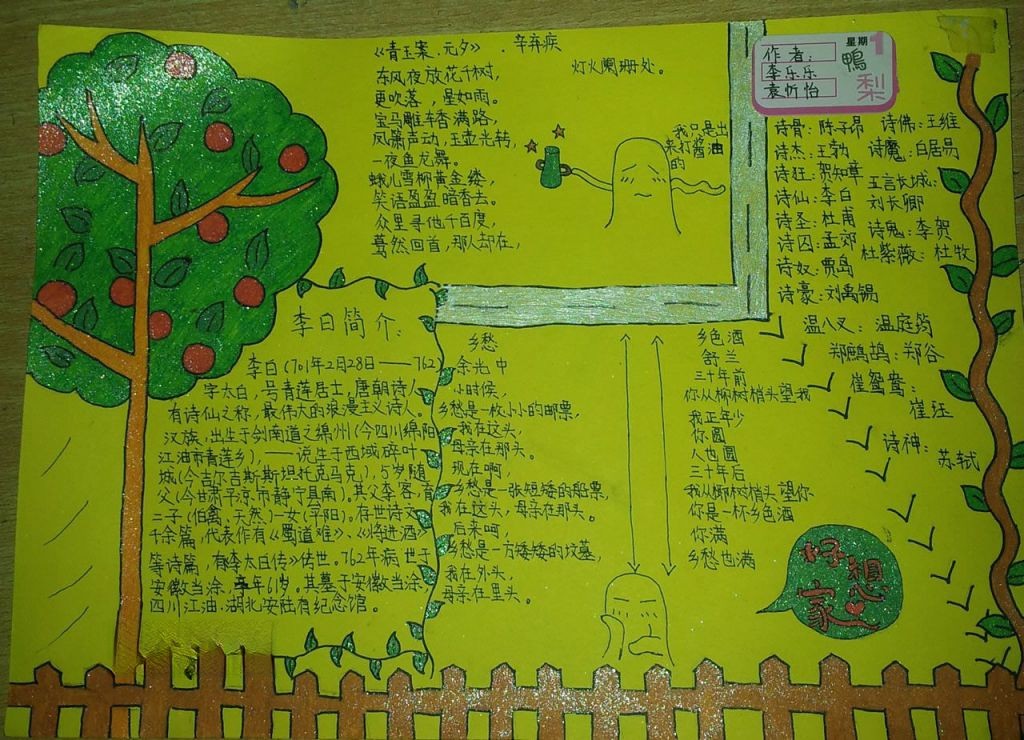 《青玉案.元夕》.辛弃疾
东风夜放花千树,
更吹落,星如雨。
宝马雕车香满路,
凤箫声动,玉壶光转,
一夜鱼龙舞。
蛾儿雪柳黄金缕,
笑语盈盈暗香去。
众里寻他千百度,
蓦然回首,那人却在,
灯火阑珊处。
我只是出
来打酱油
的
星期1
作者:
李乐乐
袁忻怡
鴨
梨
诗骨:陈子昂
诗杰:王勃
诗狂:贺知章
诗仙:李白
诗圣:杜甫
诗囚:孟郊
诗奴:贾岛
诗豪:刘禹锡
诗佛:王维
诗魔:白居易
五言长城:
刘长卿
诗鬼:李贺
杜紫薇:杜牧
温八叉:温庭筠
郑鹧鸪:郑谷
崔鸳鸯:
崔珏
诗神:
苏轼
李白简介:
李白(701年2月28日——762)
字太白,号青莲居士,唐朝诗人,
有诗仙之称,最伟大的浪漫主义诗人。
汉族,出生于剑南道之绵州(今四川绵阳
江油市青莲乡),——说生于西域碎叶
城(今吉尔吉斯斯坦托克马克),5岁随
父(今甘肃平凉市静宁县南)。其父李客,育
二子(伯禽,天然)一女(平阳)。存世诗文
千余篇,代表作有《蜀道难》、《将进酒》
等诗篇,有《李太白传》传世。762年病世于
安徽当涂,享年61岁。其墓于安徽当涂,
四川江油.湖北安陆有纪念馆。
乡愁
余光中
小时候,
乡愁是一枚小小的邮票,
我在这头,
母亲在那头。
现在啊,
乡愁是一张短矮的船票,
我在这头,母亲在那头。
后来呵,
乡愁是一方矮矮的坟墓,
我在外头,
母亲在里头。
乡色酒
舒兰
三十年前
你从柳树梢头望我
我正年少
你圆
人也圆
三十年后
我从椰树梢头望你
你是一杯乡色酒
你满
乡愁也满
好想
家